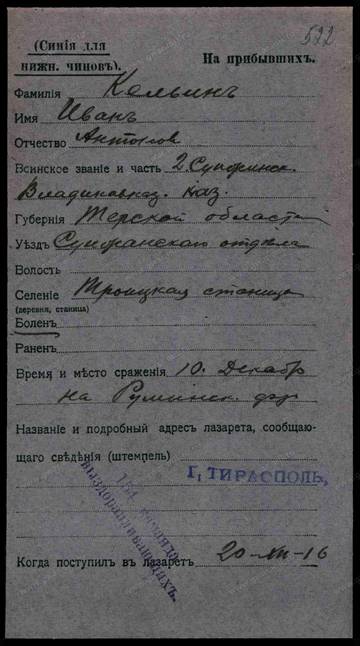 522
(Синія для
нижн. чиновъ).
На прибывшихъ.
Фамилія Кельинъ
Имя Иванъ
Отчество Антонов
Воинское званіе и часть 2. Сунженск.
Владикавказ. каз.
Губернія Терской области
Уѣздъ Сунженскаго отдѣла
Волость
Селеніе Троицкая станица
(деревня, станица)
Боленъ
Раненъ
Время и мѣсто сраженія 10. Декабр
на Румынск. фр.
Названіе и подробный адресъ лазарета, сообщаю-
щаго свѣдѣнія (штемпель)
Г. ТИРАСПОЛЬ,
154 команда
выздоравливающихъ.
Когда поступилъ въ лазаретъ 20-XII-16